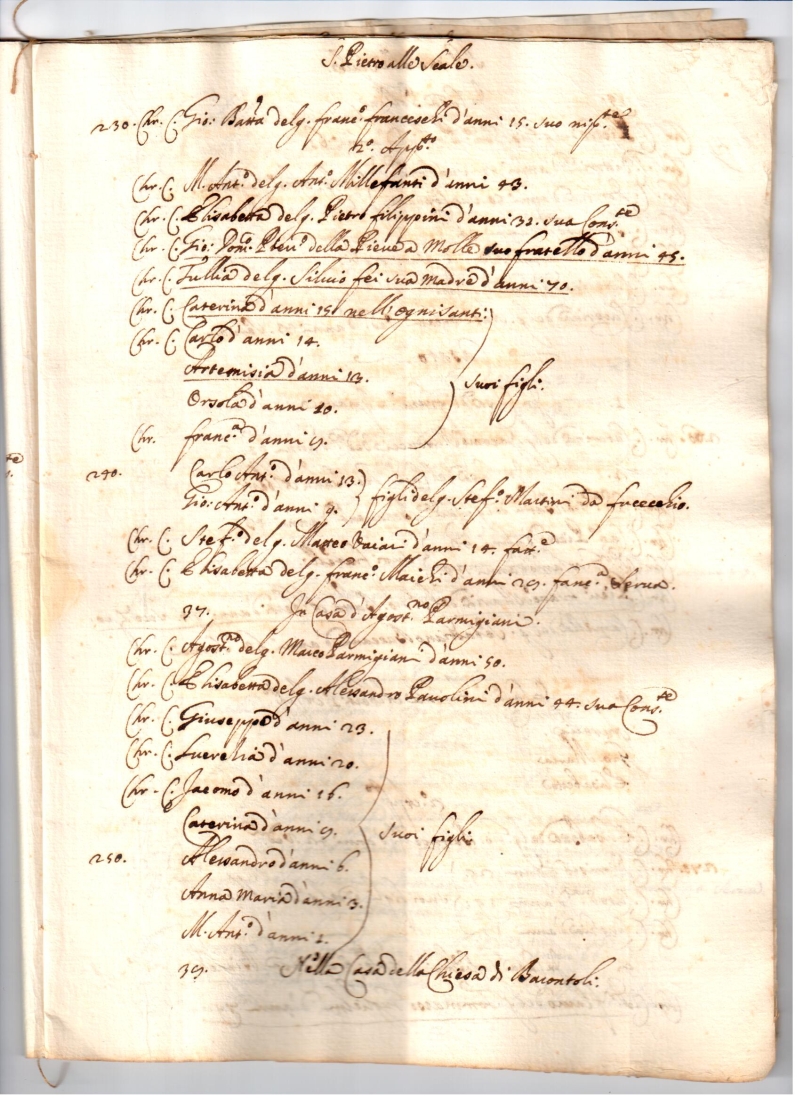 S. Pietro alle Scale.
230. Chr. C. Gio: Batta del q. Franc.o Franceschi d'anni 15. suo nip.te
2.o App.to
Chr. C. M. Ant.o del q. Ant.o Millefanti d'anni 43.
Chr. C. Elisabetta del q. Pietro Filippini d'anni 32. sua Cons.te
Chr. C. Gio: Dom.o della Pieve a Molle suo fratello d'anni 45.
Chr. C. Tullia del q. Silvio fei sua madre d'anni 70.
Chr. C. Caterina d'anni 15. nell'ognisanti.
Chr. C. Carlo d'anni 14.
Artemisia d'anni 13.
suoi figli.
Orsola d'anni 10.
Chr. franc.a d'anni 9.
240. Carlo Ant.o d'anni 13.
Gio: Ant.o d'anni 9. figli del q. Stef.o Martini da fucecchio.
Chr. C. Stef.o del q. Matteo d'anni 14. fatt.e
Chr. C. Elisabetta del q. franc.o d'anni 29. Serva.
37. In Casa d'Agost.no Parmigiani.
Chr. C. Agost.no del q. Marco Parmigiani d'anni 50.
Chr. C. Elisabetta del q. Alessandro Pavolini d'anni 44. sua Cons.te
Chr. C. Giuseppe d'anni 23.
Chr. C. Lucrezia d'anni 20.
Chr. C. Jacomo d'anni 16.
Caterina d'anni 9. suoi figli
250. Alessandro d'anni 6.
Anna Maria d'anni 3.
M. Ant.o d'anni 1.
39. Nella Casa della Chiesa di Bacontoli.